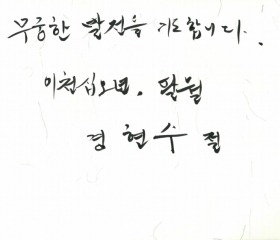 무궁한 발전을 기도합니다.
이천십오년. 팔월
경 현 수 절